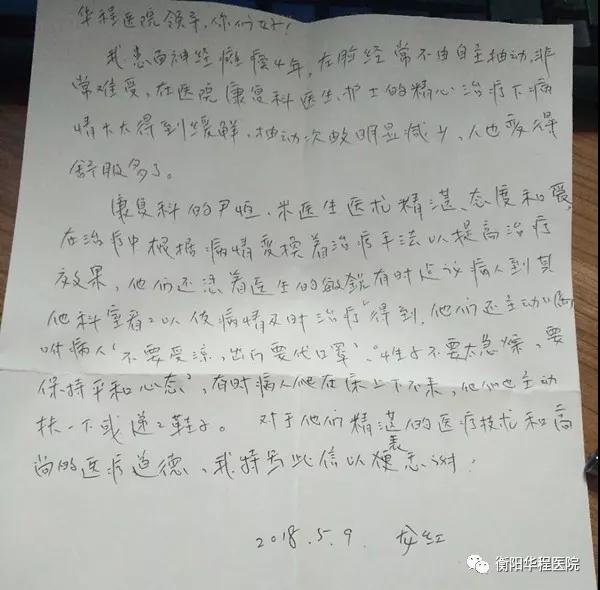 华程医院领导,你们好!
我患面神经痉挛4年,左脸经常不由自主抽动,非
常难受,在医院康复科医生、护士的精心治疗下病
情大大得到缓解,抽动次数明显减少,人也变得
舒服多了。
康复科的尹恒、米医生医术精湛、态度和爱,
在治疗中根据病情变换着治疗手法以提高治疗
效果,他们还凭着医生的敏锐有时建议病人到其
他科室看看以使病情及时治疗得到,他们还主动
咐病人“不要受凉,出门要代口罩”、“性子不要太急燥,要
保持平和心态”,有时病人爬在床上下不来,他们也主动
扶一下或递递鞋子。对于他们精湛的医疗技术和高
尚的医疗道德、我特写此信以表感谢!
2018.5.9. 龙红
衡阳华程医院